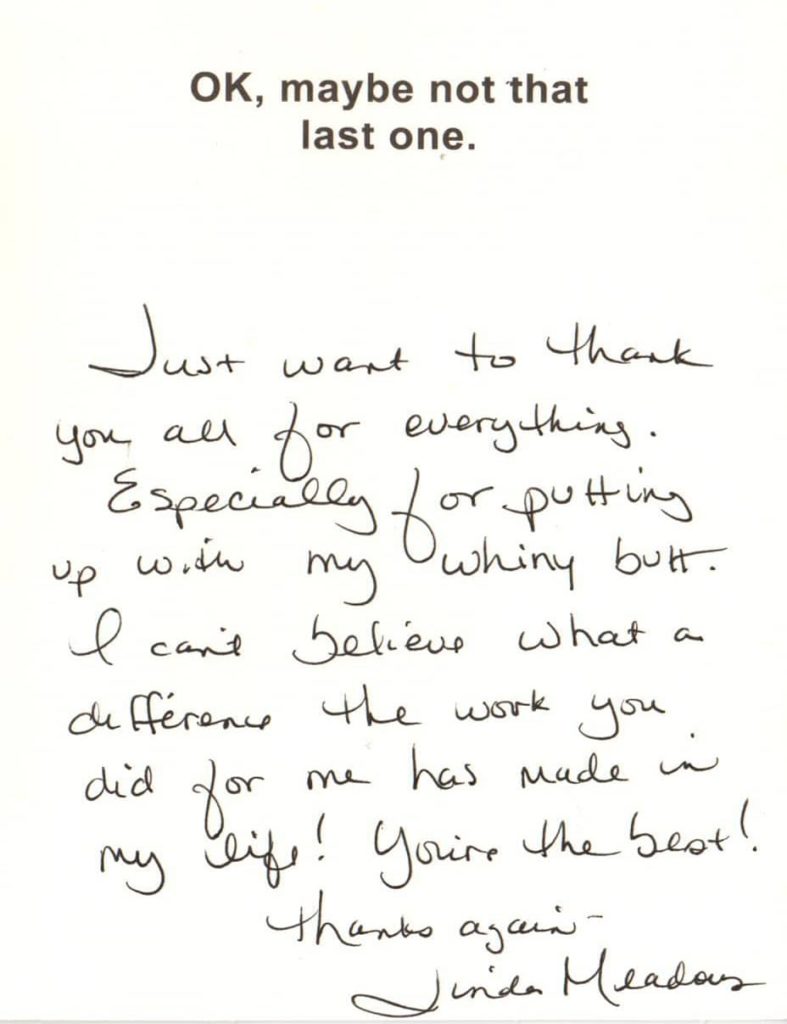 OK, maybe not that
last one.
Just want to thank
you all for everything.
Especially for putting
up with my whiny butt.
I can't believe what a
difference the work you
did for me has made in
my life! You're the best!
thanks again-
Linda Meadows